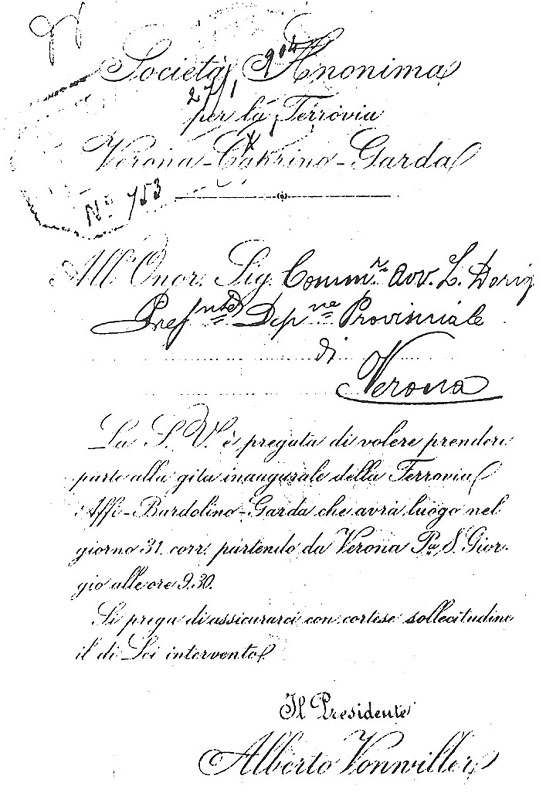 Società Anonima
27/1 904
per la Ferrovia
Verona-Caprino-Garda
N° 753
All'Onor. Sig. Comm.re Avv. L. Dorig
Pres nte Dep ne Provinciale
di
Verona
La S. V. è pregata di volere prendere
parte alla gita inaugurale della Ferrovia
Affi-Bardolino-Garda che avrà luogo nel
giorno 31 corr. partendo da Verona Pa. S. Gior-
gio alle ore 9.30.
Si prega di assicurarci con cortese sollecitudine
il di Lei intervento
Il Presidente
Alberto Vonwiller